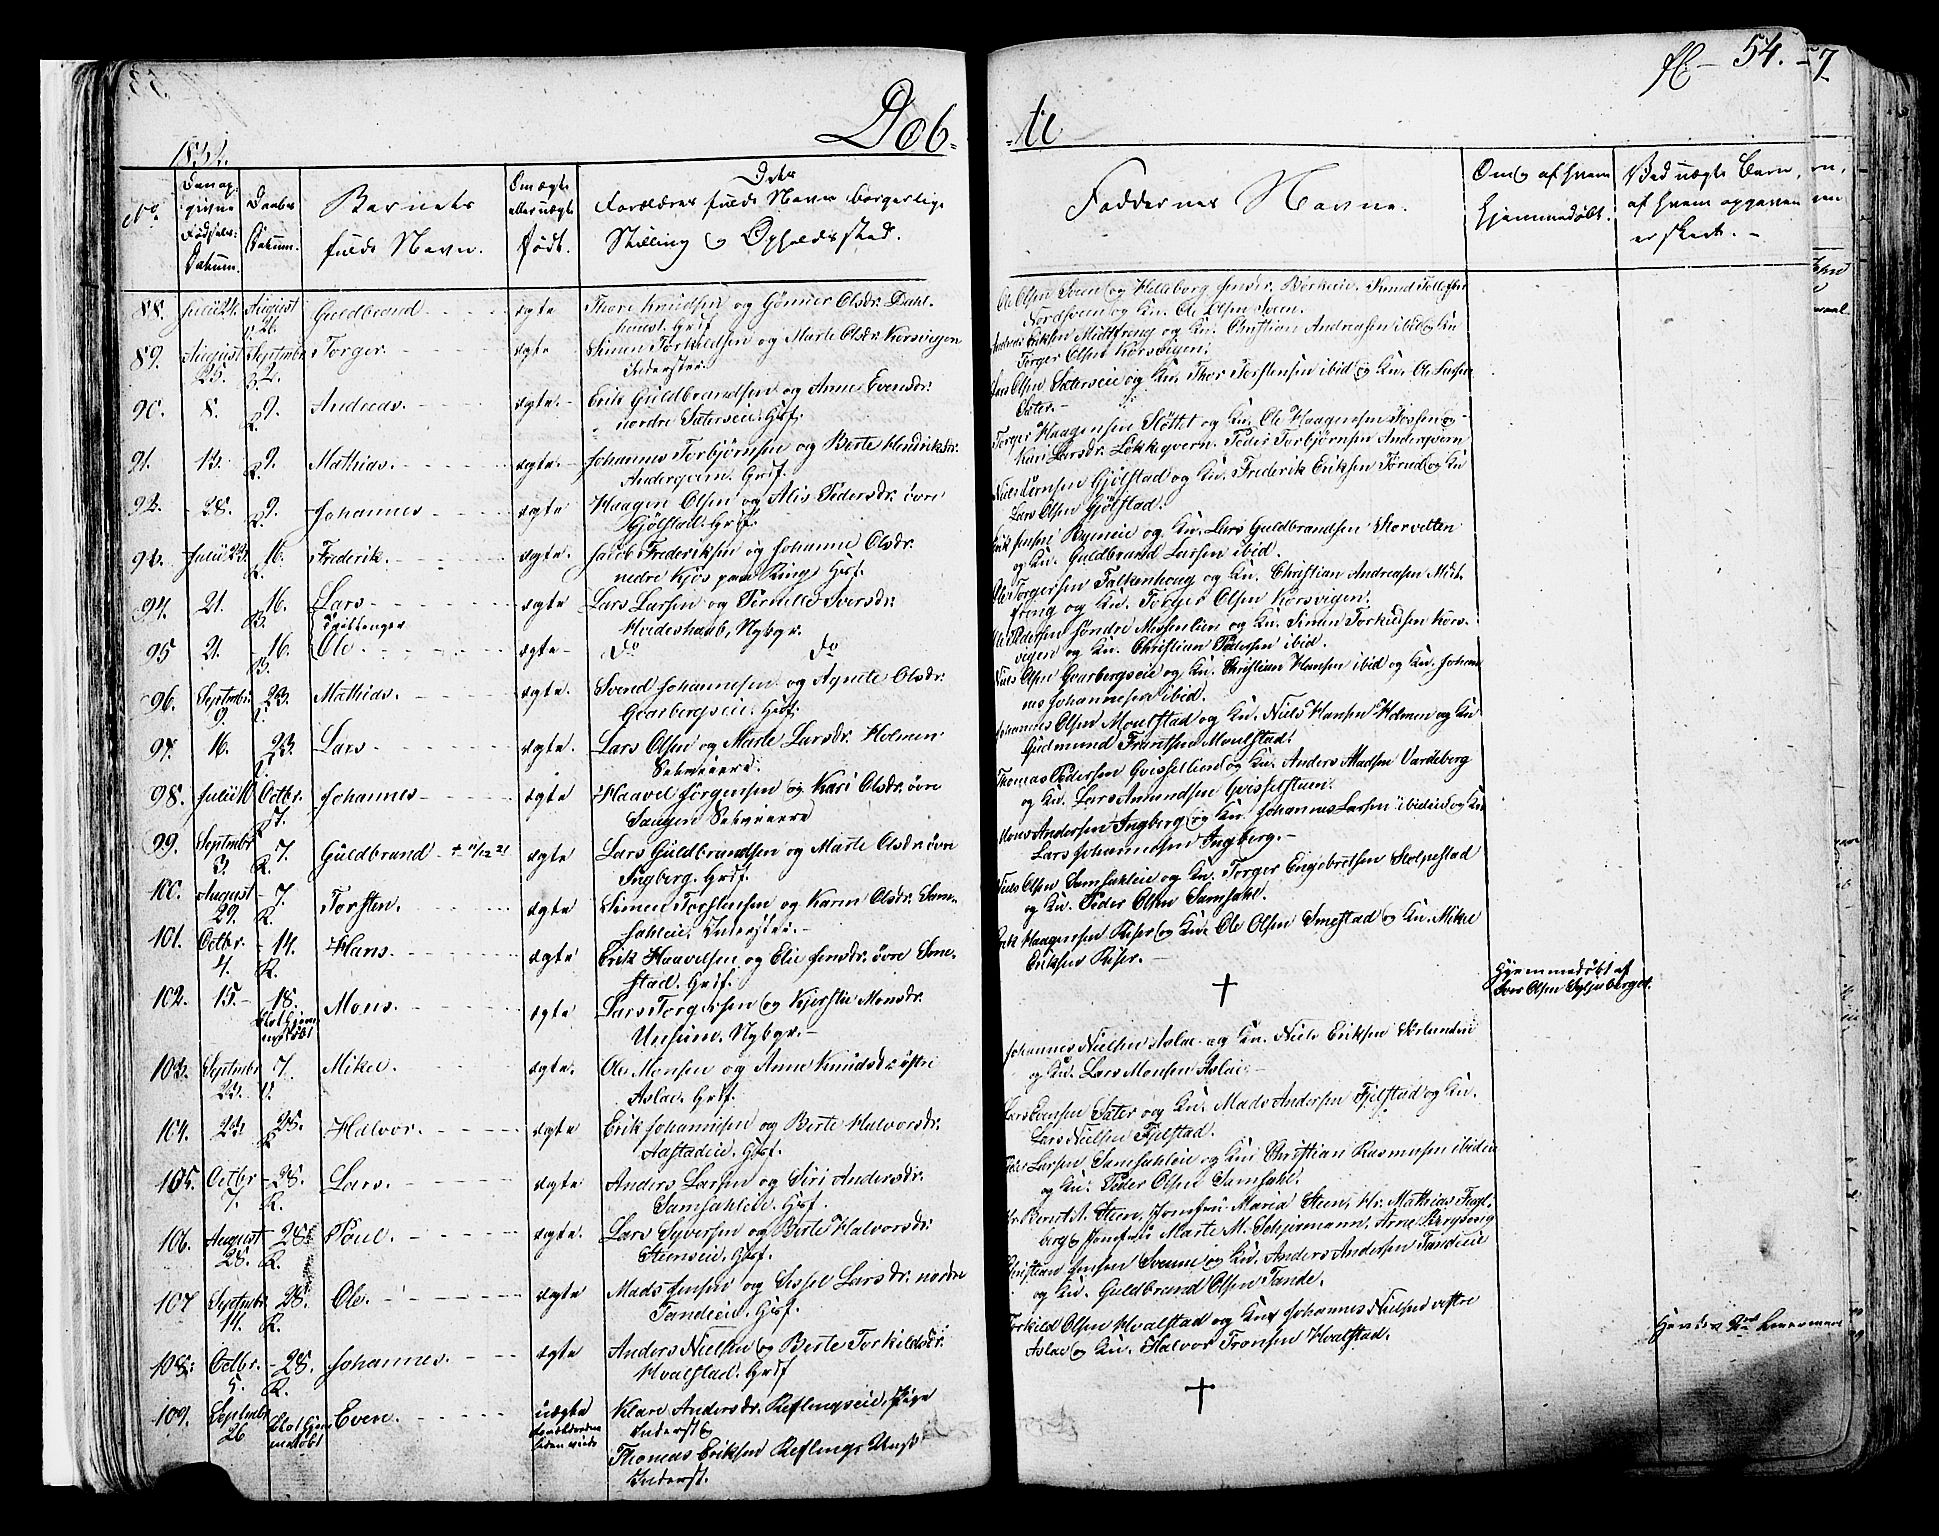 fl- 54.
7
Døb-
-te
183
No
Den op-
givne
Fødsels-
Datum.
Daabs
Datum.
Barnets
fulde Navn.
Om ægte
eller uægte
Født.
Dets
Forældres fulde Navn borgerlige
Stilling og Opholdssted.
Faddernes Navne.
Om og af hvem
hjemmedøbt.
Ved uægte Børn,
af hvem opgaven
er skeet. -
88. Julii 24. August 26. Guldbrand ægte Thore Knudsen og Gønner Olsdr. Dahl-
haust. Gbsf.
Ole Olsen Sveen og Helleborg Jensdr. Børkeeie. Knud Tollefsen
Nordsveen og Km. Ole Olsen Sveen.
89. August 25. Septembr 2. Torger. ægte Simen Torkildsen og Marte Olsdr. Korsvigen
Inderster.
Andreas Eriksen Midtfrang og Km. Christian Andreasen ibid og Km
Torger Olsen Korsvigen.
90. 8. 9. Andreas. ægte. Erik Guldbrandsen og Anne Evensdr.
nordre Sæterseie. Gbsf.
Lars Olsen Sæterseie og Km. Thor Torstensen ibid og Km. Ole Larsen
Sæter.
91. 13. 9. Mathias. ægte. Johannes Torbjørnsen og Berte Hendriksdr.
Andersqvern. Gbsf.
Torger Haagensen Sløttet og Km. Ole Haagensen Fossen og
Kari Larsdr. Løkkeqvern. Peder Torbjørnsen Andersqvern
92. 28. 9. Johannes ægte Haagen Olsen og Alis Pedersdr. øvre
Gjølstad. Gbsf.
Niels Jørnsen Gjølstad og Km. Frederik Eriksen Torud og Km
Lars Olsen Gjølstad.
93. Julii 23. 16. Frederik. ægte. Jacob Frederiksen og Johanne Olsdr.
nedre Kjos paa Rings Gbsf.
Erik Jensen Rymeie og Km. Lars Guldbrandsen Skorvelten
og Km. Guldbrand Larsen ibid.
94. 21. 16. Lars ægte Lars Larsen og Pernille Iversdr.
Tvillinger
Hvideshaab, Nybgr.
Ole Torgersen Falkenhoug og Km. Christian Andreasen Midt-
frang og Km. Torger Olsen Korsvigen.
95 21. 16. Ole ægte do do
Ole Pedersen søndre Messenlien og Km. Simen Torkildsen Kors-
vigen og Km. Christian Pedersen ibid.
96. Septembr 9. 23. Mathias. ægte. Svend Johannesen og Agnete Olsdr.
Gvarbergseie. Gbsf.
Niels Olsen Gvarbergseie og Km. Christian Hansen ibid og Km. Johan-
nes Johannesen ibid.
97. 16. 23 Lars ægte. Lars Olsen og Marte Larsdr. Holmen
Selveiere.
Johannes Olsen Moulstad og Km. Niels Hansen Holmen og Km
Gudmund Frantsen Moulstad.
98. Julii Octbr. Johannes ægte Haavel Jørgensen og Kari Olsdr. øvre
Saugen Selveiere
Thomas Pedersen Gvisselliend og Km. Anders Madsen Vardeberg
og Km. Lars Amundsen Gvisselstuen.
99. Septembr 3. 7. R. Guldbrand + 11/12 21 ægte Lars Guldbrandsen og Marte Olsdr. øvre
Ingberg. Gbsf.
Mons Andersen Ingberg og Km. Johannes Larsen ibideie og Km
Lars Johannesen Ingberg.-
100. August 29. 7. R. Torsten. ægte Simen Torstensen og Karen Olsdr. Sam-
sahleie. Inderster.-
Niels Olsen Samsahleie og Km. Torger Engebretsen Stolpestad
og Km. Peder Olsen Samsahl.
101. Octbr. 4. - 14. R. Hans. ægte Erik Haavelsen og Elie Jensdr. øvre Sme-
stad. Gbsf.
Erik Haagensen Riser og Km Ole Olsen Smestad og Km. Mikel
Eriksen Riser.-
102. 15. 18. blot hjem-
medøbt
Mons. ægte Lars Torgersen og Kjerstie Monsdr.
Unsum. Nybgr.-
✝
Hjemmedøbt af
Iver Olsen Sylsebergst.
103. Septembr 23. 7. Mikel. ægte. Ole Monsen og Anne Knudsdr. østre
Aslac. Gbsf.
Johannes Nielsen Aslac og Km. Niels Eriksen Skrlunden
og Km. Lars Monsen Aslac.-
104. 23. 28. R Halvor. ægte Erik Johannesen og Berte Halvorsdr.
Aastadeie. Gbsf.
Lars Evensen Sæter og Km. Mads Andersen Fjelstad og Km.
Lars Nielsen Fjelstad.
105. Octbr 7. -28. R. Lars. ægte Anders Larsen og Siri Andersdr.
Samsahleie. Gbsf.
Peder Larsen Samsahleie og Km Christian Rasmussen ibideie
og Km. Peder Olsen Samsahl.
106. August 28. -28. R. Poul. ægte. Lars Syversen og Berte Halvorsdr.
Steenseie. Gbsf.
Hr. Bernt A. Steen, Jomfru Maria Steen, Hr. Mathias Fagl-
berg og Jomfru Marte M. Schjermann, Arne Brynsong
107 Septembr 14. 28. R. Ole. ægte Mads Jensen og Sissel Larsdr. nordre
Tandeeie. Gbsf.
Christian Jensen Sveum og Km. Anders Andersen Tandeeie
og Km. Guldbrand Olsen Tande.
108. Octbr. 5. - 28. R. Johannes. ægte Anders Nielsen og Berte Torkildsdr.
Hvalstad. Gbsf
Torkild Olsen Hvalstad og Km Johannes Nielsen vestre
Aslac og Km. Halvor Tronsen Hvalstad.
109. Septembr 26 blot hjem-
medøbt
Even. uægte
Klare Andersdr. Reflingseie, Pige
Inderst og
Thomas Eriksen Reflings Ungk
Inderst.
✝